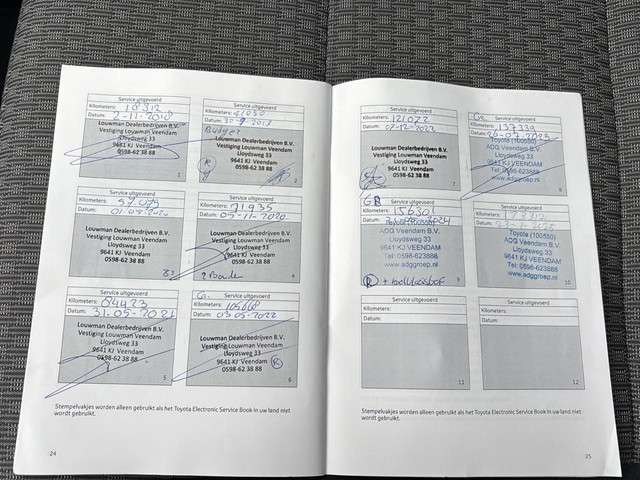 Service uitgevoerd
Kilometers:
Datum: 2-11-2018
Louwman Dealerbedrijven B.V.
Vestiging Louwman Veendam
Lloydsweg 33
9641 KJ Veendam
0598-62 38 88
1
Service uitgevoerd
Kilometers:
Datum:
Budget
Louwman Dealerbedrijven B.V.
Vestiging Louwman Veendam
Lloydsweg 33
9641 KJ Veendam
0598-62 38 88
R
2
Service uitgevoerd
Kilometers:
Datum:
Louwman Dealerbedrijven B.V.
Vestiging Louwman Veendam
Lloydsweg 33
9641 KJ Veendam
0598-62 38 88
Service uitgevoerd
Kilometers: 71935
Datum: 05-11-2020
Louwman Dealerbedrijven B.V.
Vestiging Louwman Veendam
Lloydsweg 33
9641 KJ Veendam
0598-62 38 88
4
Service uitgevoerd
Kilometers: 84423
Datum: 31-05-2021
Louwman Dealerbedrijven B.V.
Vestiging Louwman Veendam
Lloydsweg 33
9641 KJ Veendam
0598-62 38 88
5
Service uitgevoerd
Kilometers:
Datum: 03-05-2022
Louwman Dealerbedrijven B.V.
Vestiging Louwman Veendam
Lloydsweg 33
9641 KJ Veendam
0598-62 38 88
R
6
Stempelvakjes worden alleen gebruikt als het Toyota Electronic Service Book in uw land niet
wordt gebruikt.
24
Service uitgevoerd
Kilometers: 121022
Datum:
Louwman Dealerbedrijven B.V.
Vestiging Louwman Veendam
Lloydsweg 33
9641 KJ Veendam
0598-62 38 88
7
Service uitgevoerd
Kilometers: 137330
Datum:
Toyota (100550)
ADG Veendam B.V.
Lloydsweg 33
9641 KJ VEENDAM
Tel: 0598-623888
www.adggroep.nl
8
Service uitgevoerd
Kilometers:
Datum:
ADG Veendam B.V.
Lloydsweg 33
9641 KJ VEENDAM
Tel: 0598-623888
www.adggroep.nl
R
9
Service uitgevoerd
Kilometers:
Datum:
Toyota (100550)
ADG Veendam B.V.
Lloydsweg 33
9641 KJ VEENDAM
Tel: 0598-623888
www.adggroep.nl
10
Service uitgevoerd
Kilometers:
Datum:
11
Service uitgevoerd
Kilometers:
Datum:
12
Stempelvakjes worden alleen gebruikt als het Toyota Electronic Service Book in uw land niet
wordt gebruikt.
25